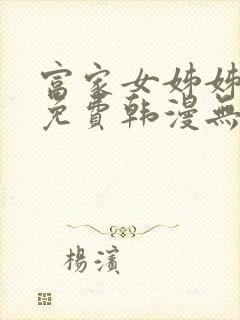 富家女姊姊
免費韩漫無
楊濱